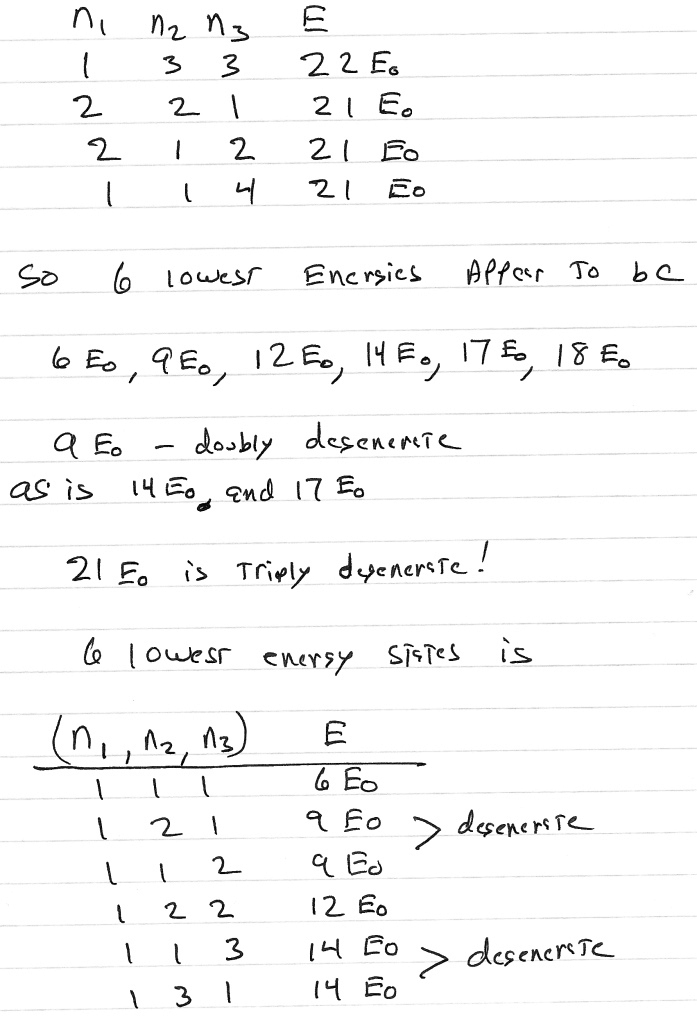 n₁ n₂ n₃ E
1 3 3 22 E₀
2 2 1 21 E₀
2 1 2 21 E₀
1 1 4 21 E₀
So 6 lowest Energies Appear To be
6 E₀, 9 E₀, 12 E₀, 14 E₀, 17 E₀, 18 E₀
9 E₀ – doubly degenerate
as is 14 E₀, and 17 E₀
21 E₀ is Triply degenerate!
6 lowest energy states is
(n₁, n₂, n₃) E
1 1 1 6 E₀
1 2 1 9 E₀ > degenerate
1 1 2 9 E₀
1 2 2 12 E₀
1 1 3 14 E₀ > degenerate
1 3 1 14 E₀